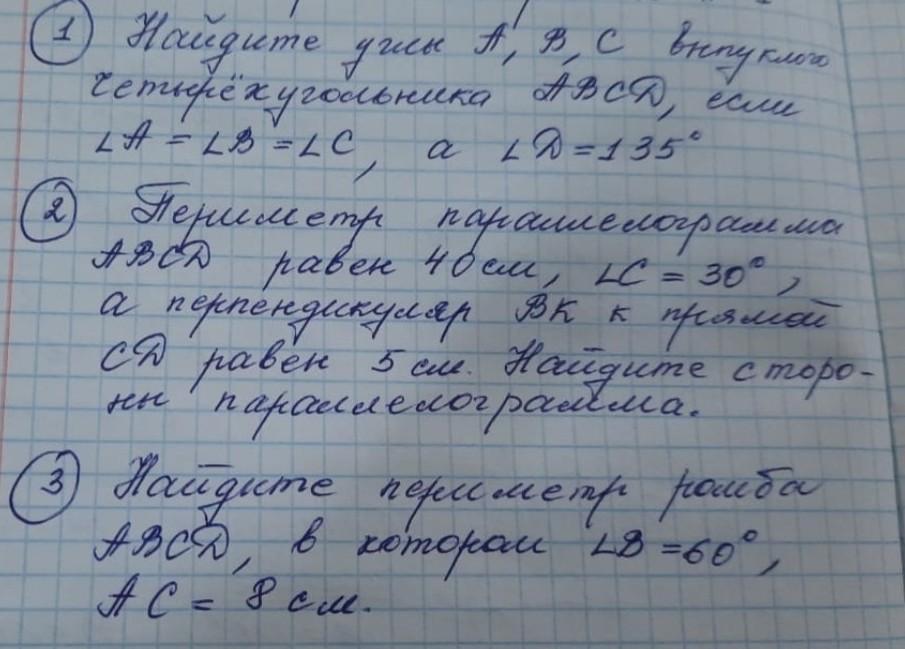 1 Найдите углы А, В, С выпуклого
четырёхугольника ABCD, если
∠A = ∠B = ∠C, а ∠D = 135°
2 Периметр параллелограмма
ABCD равен 40 см, ∠C = 30°,
а перпендикуляр ВК к прямой
CD равен 5 см. Найдите сторо-
ны параллелограмма.
3 Найдите периметр ромба
ABCD, в котором ∠B = 60°,
AC = 8 см.